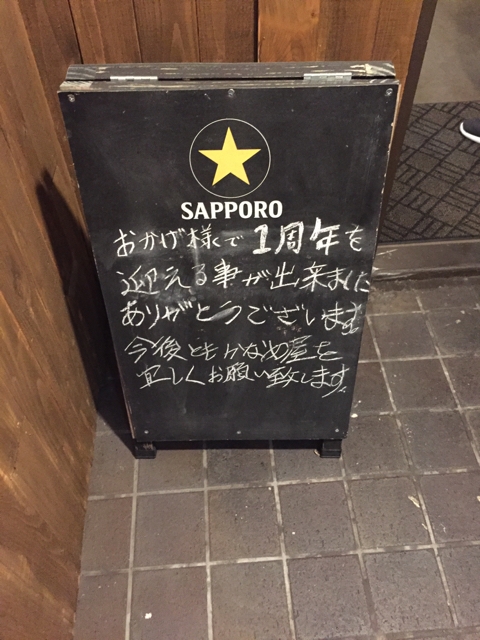 SAPPORO
おかげ様で1周年を
迎える事が出来ました
ありがとうございます
今後ともかなめ屋を
宜しくお願い致します。